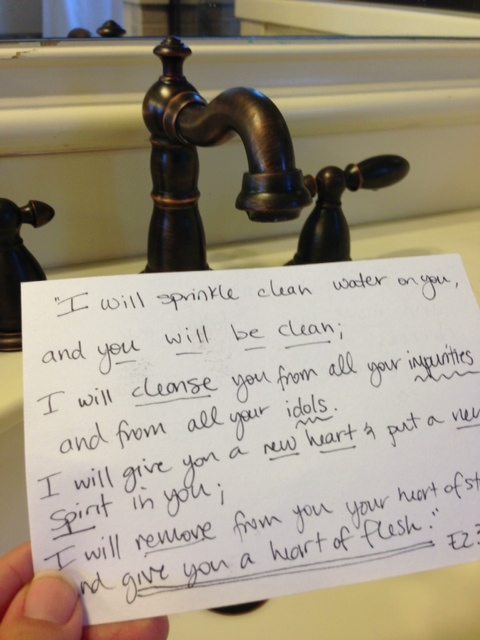 "I will sprinkle clean water on you,
and you will be clean;
I will cleanse you from all your impurities
and from all your idols.
I will give you a new heart & put a new
spirit in you;
I will remove from you your heart of st
nd give you a heart of flesh."
EZ 3